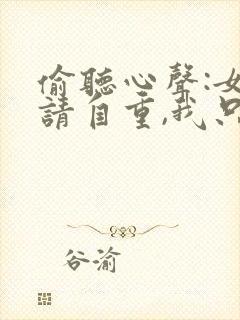 偷聽心聲:女
請自重,我只
谷渝